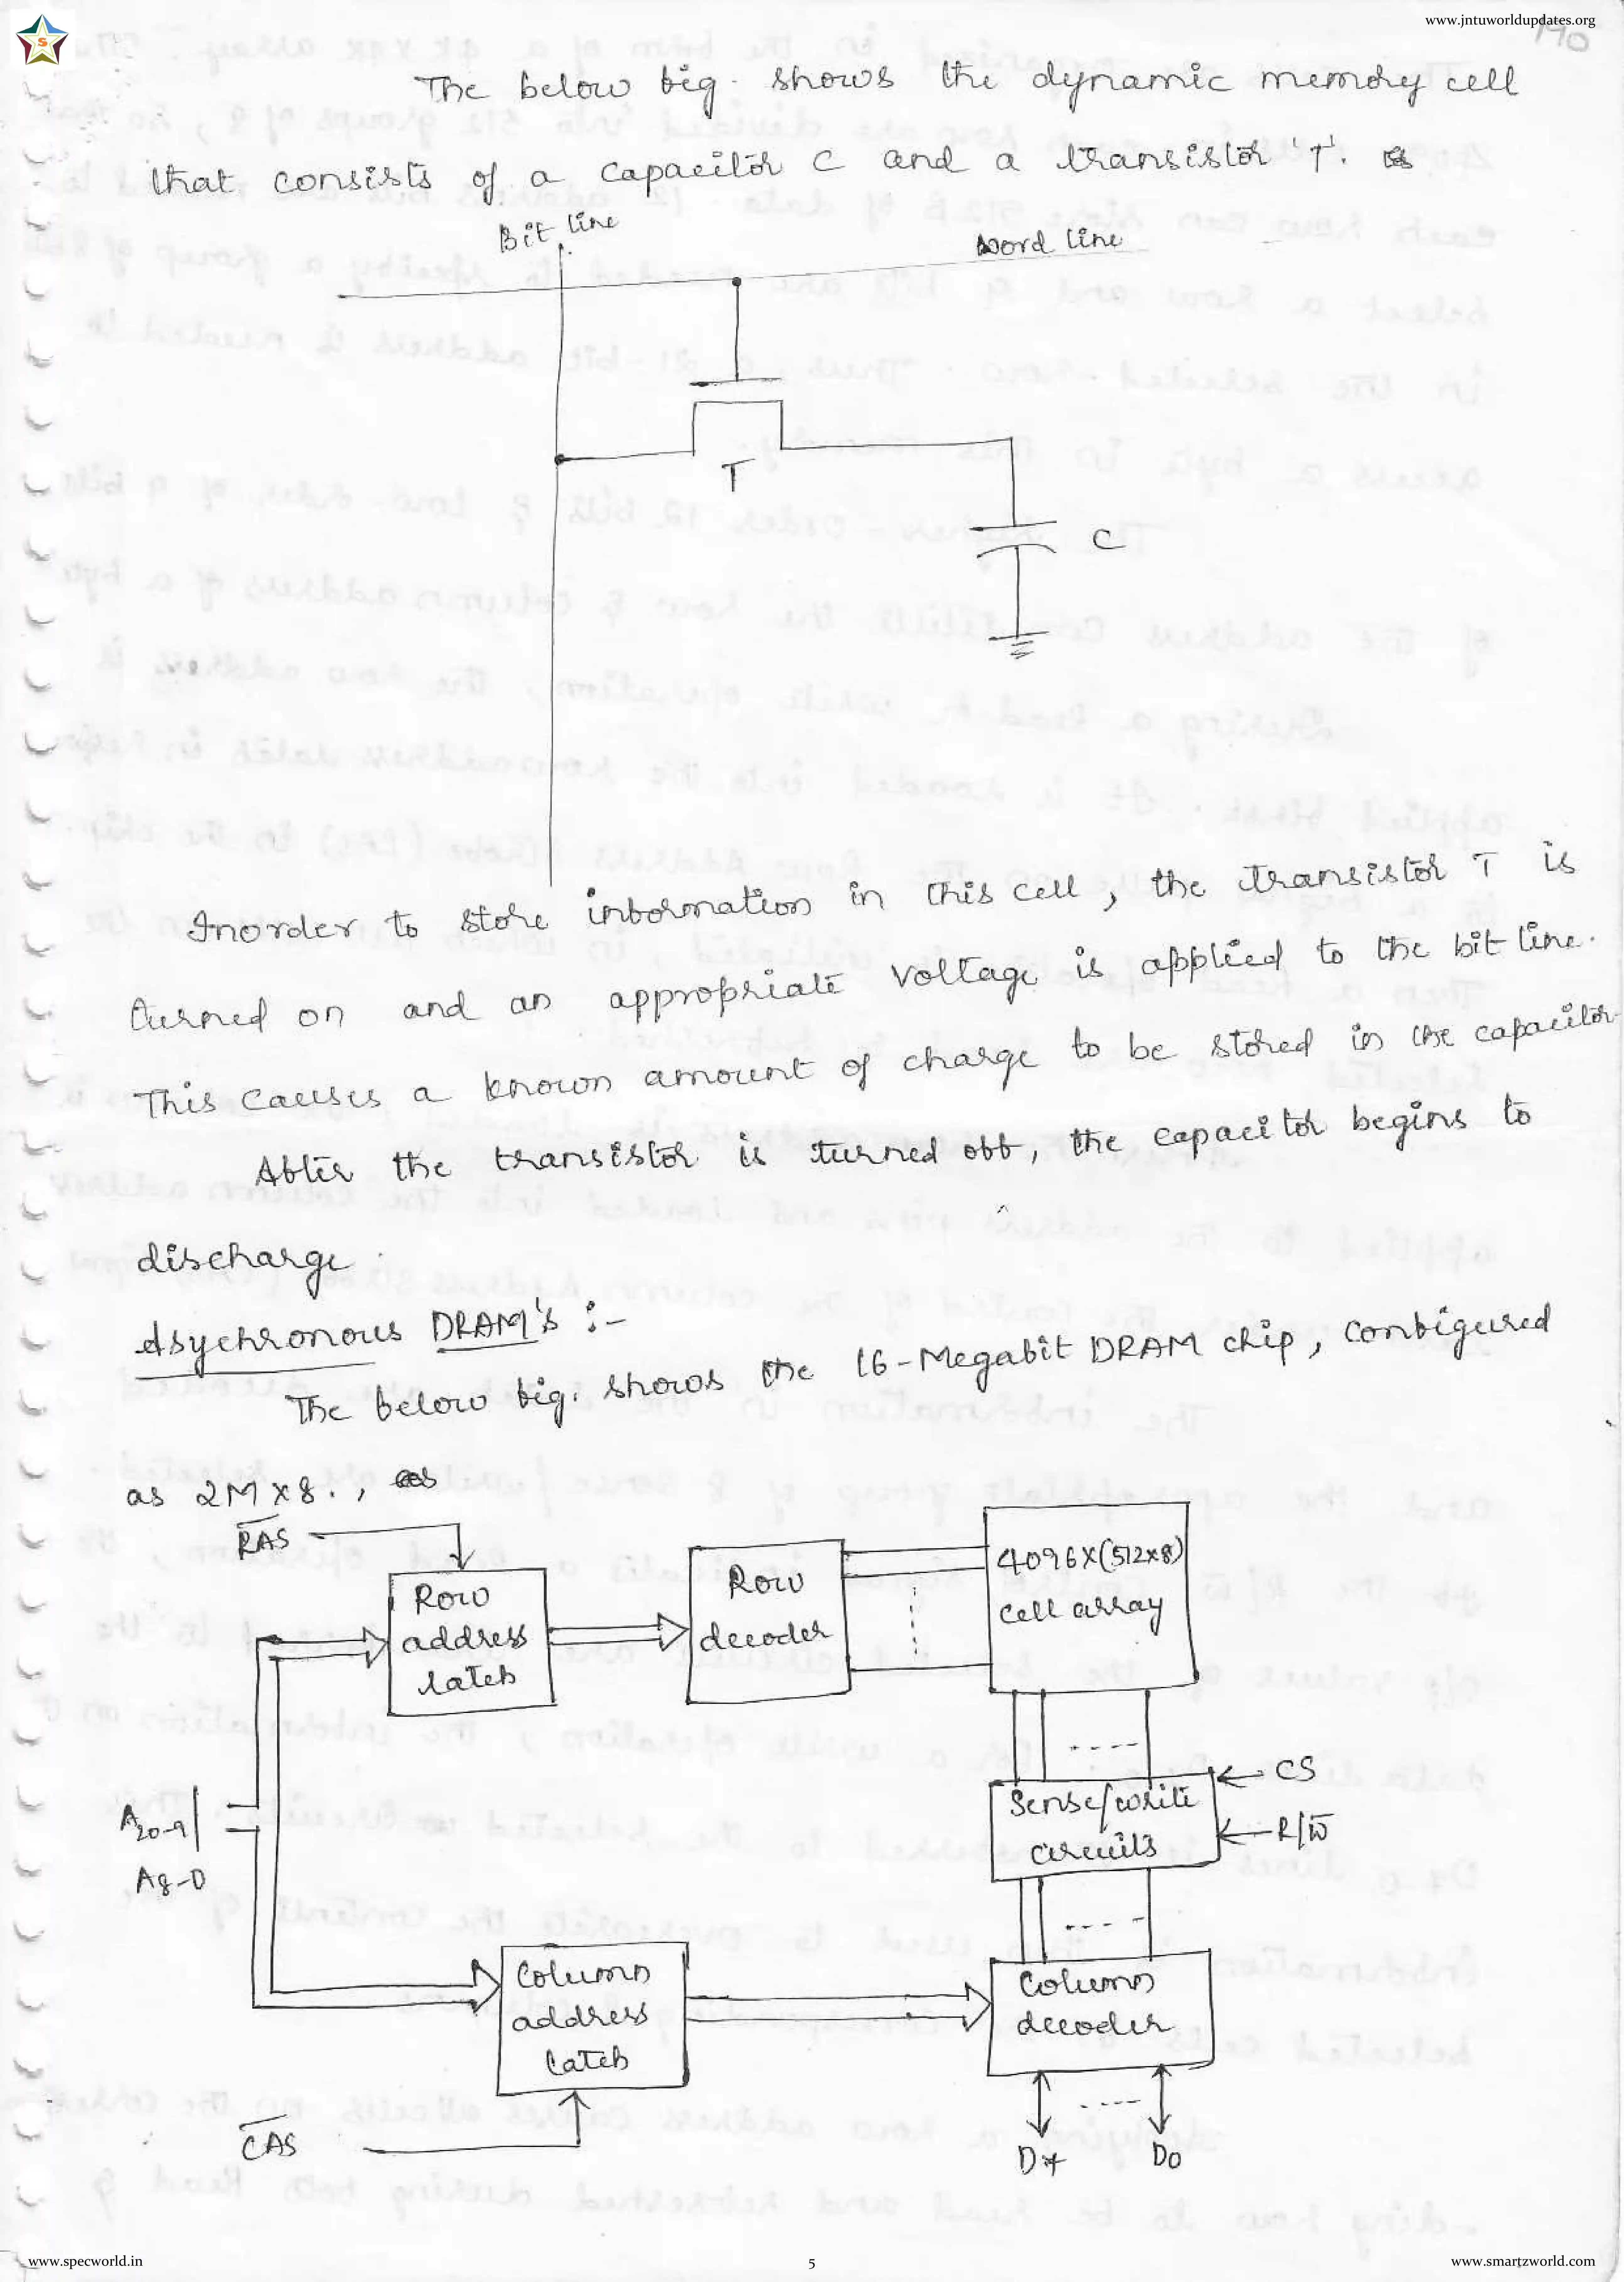 www.jntuworldupdates.org
190
S
The below fig. shows the dynamic memory cell
that consists of a capacitor C and a transistor 'T'.
Bit line
Word line
T
C
Inorder to store information in this cell, the transistor T is
turned on and an appropriate voltage is applied to the bit line.
This causes a known amount of charge to be stored in the capacitor.
After the transistor is turned off, the capacitor begins to
discharge.
Asychronous DRAM's :-
The below fig. shows the 16-Megabit DRAM chip, configured
as 2M x 8., as
RAS
Row address latch
Row decoder
4096x(512x8) cell array
A20-9
A8-0
Sense/write circuits
CS
R/W
Column address latch
Column decoder
CAS
D7
D0
www.specworld.in
5
www.smartzworld.com